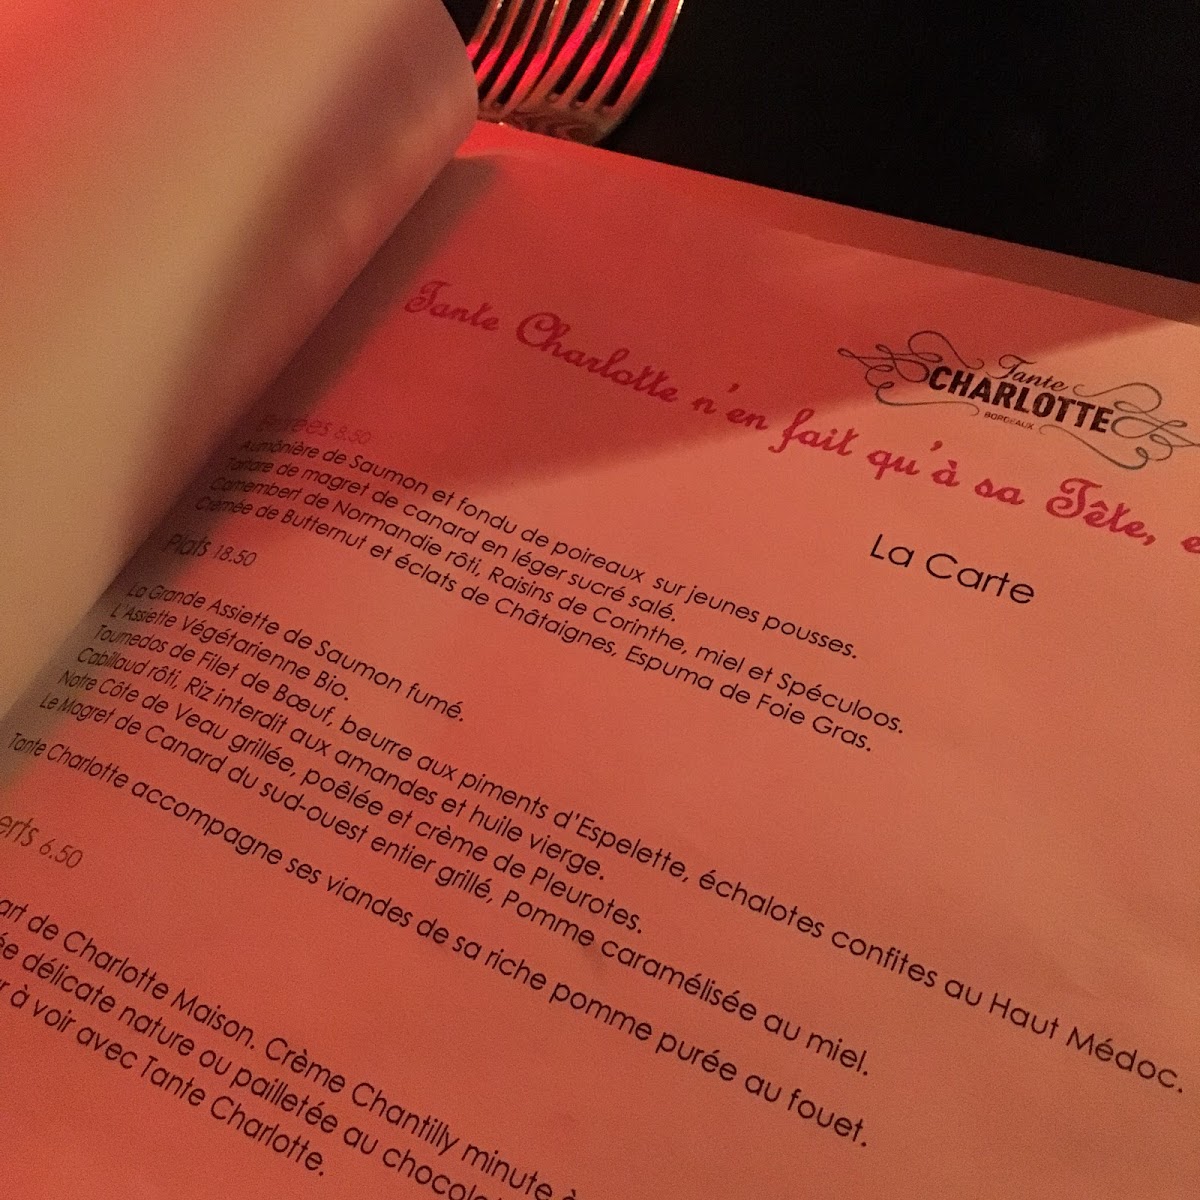 Tante Charlotte n'en fait qu'à sa Tête, e
Tante
CHARLOTTE
BORDEAUX
La Carte
Entrées 8.50
Aumônière de Saumon et fondu de poireaux sur jeunes pousses.
Tartare de magret de canard en léger sucré salé.
Camembert de Normandie rôti, Raisins de Corinthe, miel et Spéculoos.
Crémée de Butternut et éclats de Châtaignes, Espuma de Foie Gras.
Plats 18.50
La Grande Assiette de Saumon fumé.
L'Assiette Végétarienne Bio.
Tournedos de Filet de Bœuf, beurre aux piments d'Espelette, échalotes confites au Haut Médoc.
Cabillaud rôti, Riz interdit aux amandes et huile vierge.
Notre Côte de Veau grillée, poêlée et crème de Pleurotes.
Le Magret de Canard du sud-ouest entier grillé, Pomme caramélisée au miel.
Tante Charlotte accompagne ses viandes de sa riche pomme purée au fouet.
erts 6.50
art de Charlotte Maison. Crème Chantilly minute à
ée délicate nature ou pailletée au chocolat
r à voir avec Tante Charlotte.